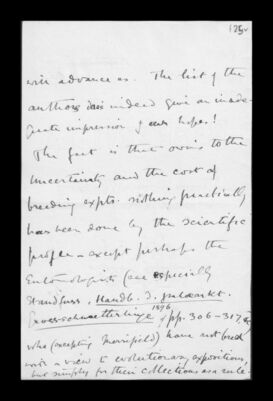 125v
will advance us. The list of the
authors does indeed give an inade-
quate impression of our hopes!
The fact is that owing to the
uncertainty and the cost of
breeding expts. nothing practically
has been done by the scientific
profn — except perhaps the
Entomologists (see especially
Standfuss, Handb. d. palaearkt.
Gross-schmetterlinge 1896, pp. 306–317,
who (excepting Merrifield) have not
with a view to evolutionary expositions,
but simply for their collections as a rule.